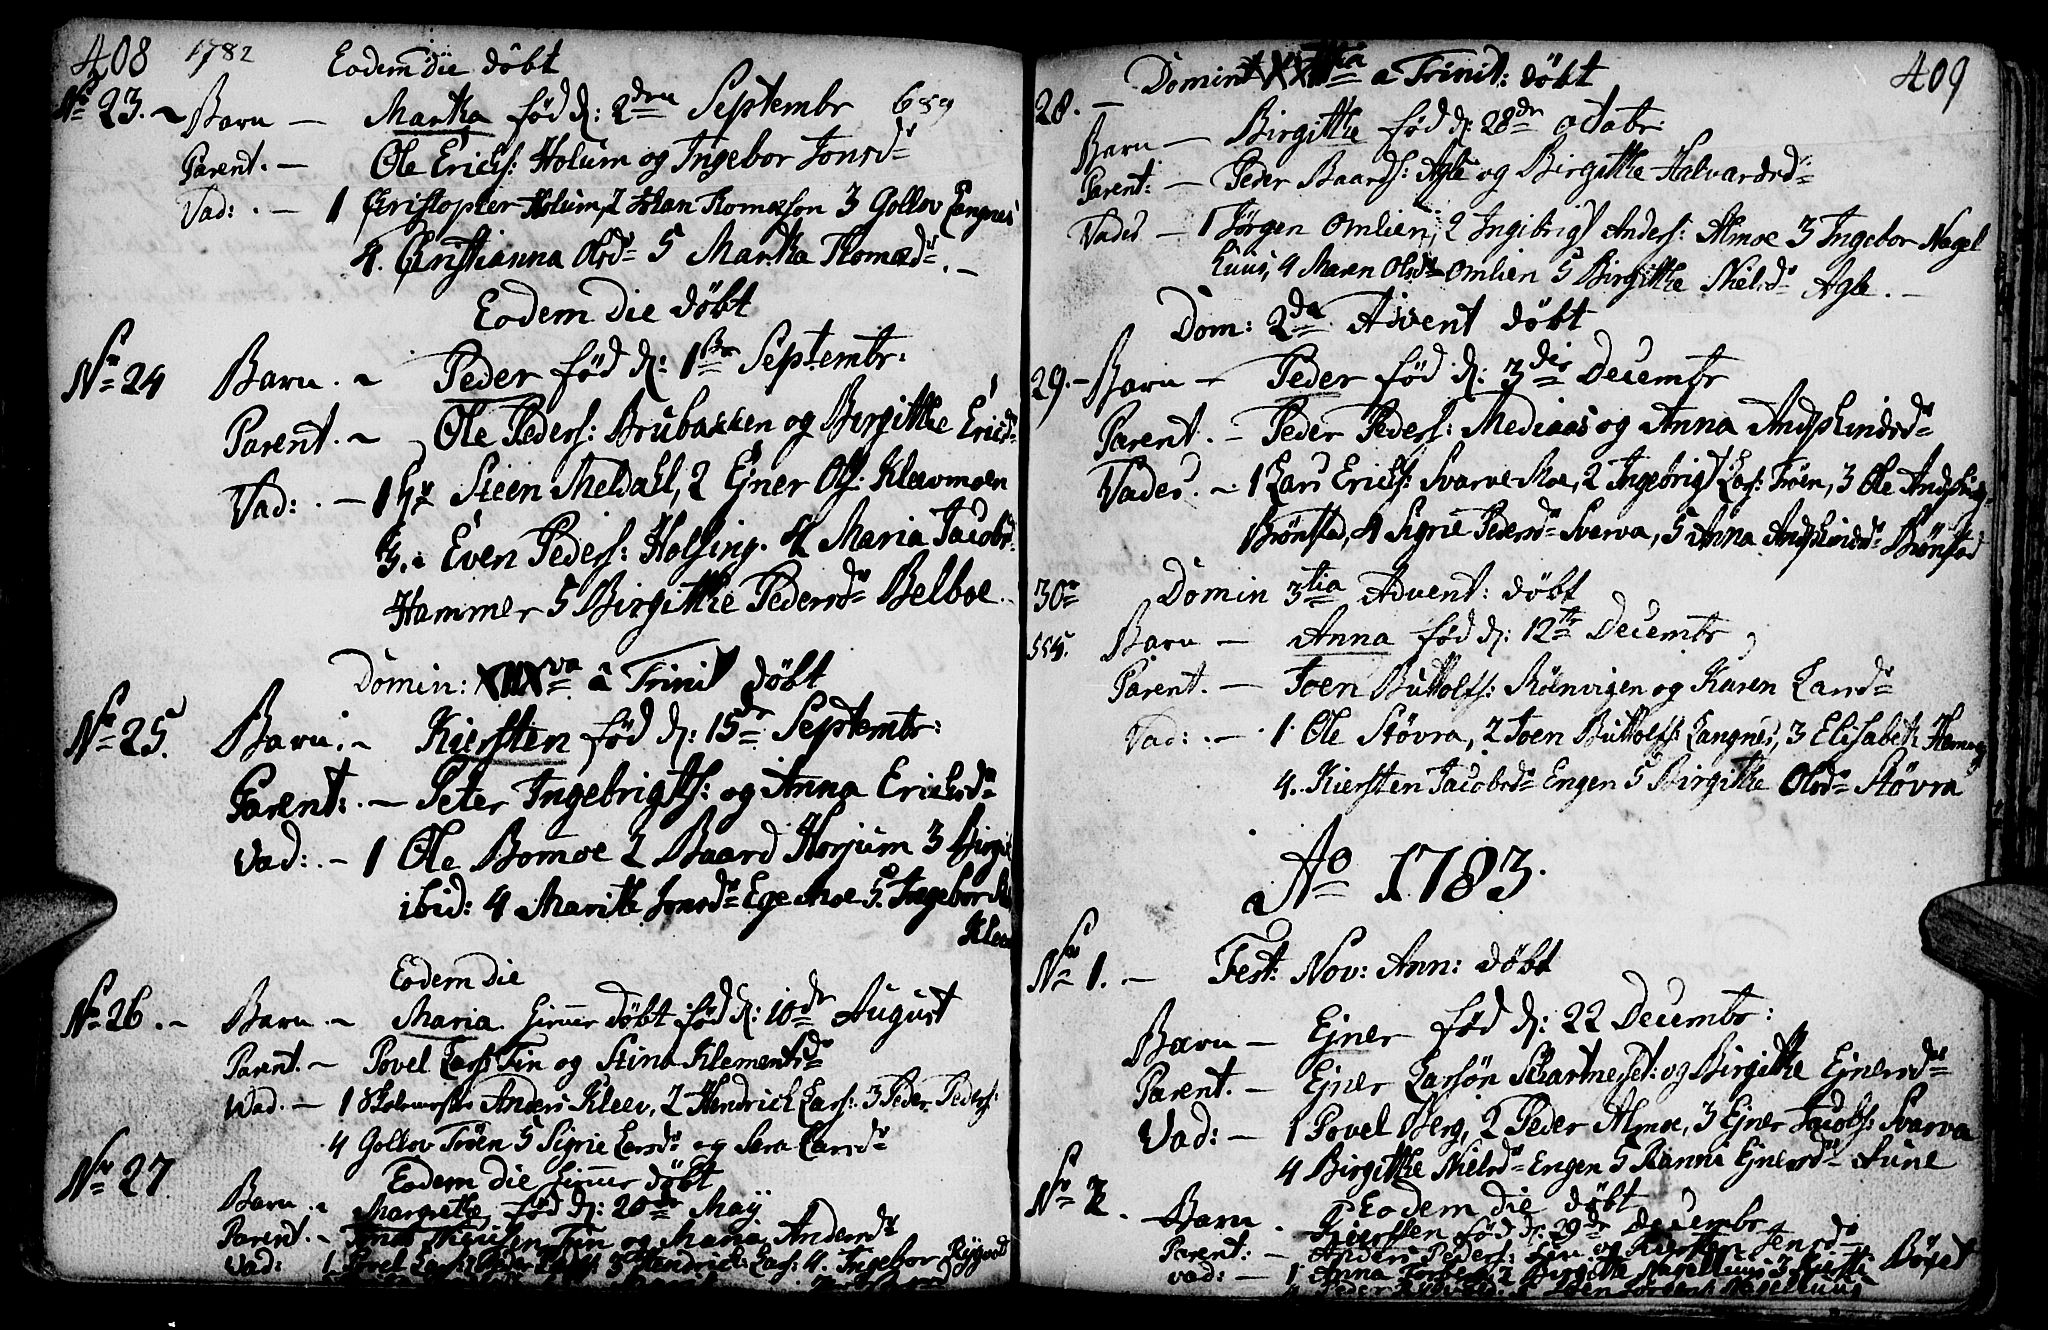 408 1782 Eodem die döbt
No 23. Barn — Martha fød d: 2den Septembr 659
Parent. — Ole Erichs: Holum og Ingebor Jonsd
Vad: . — 1 Christopher Holum, 2 Johan Thomæson 3 Gollov Langnes
4. Christianna Olsd 5 Martha Thomæd. —
Eodem die döbt
No 24 Barn. Peder fød d: 1 Septembr:
Parent. Ole Peders: Brubakken og Birgitthe Ericd
Vad: . — 1 Hr Steen Meldahl, 2 Ejner Ols: Kleevmoen
3. Even Peders: Holsing. 4 Maria Jacobs
Hammer 5 Birgitthe Pedersd Belboe.
Domin: a Trinit döbt
No 25. Barn. Kiersten fød d: 15d Septembr:
Parent: . — Peter Ingebrigts: og Anna Erichsd
Vad: . — 1 Ole Bomoe 2 Baard Horjum 3 Birgit
ibid: 4 Marithe Jonsd Ege Moe 5 Ingebor
Eodem die
No 26. Barn. Maria döbt fød d: 10d August
Parent. — Povel Lars: Tin og Stina Klementsd
Vad. — 1 Anders Kleev, 2 Hendrich Lars: 3 Peder Peders:
4 Gollov Troen 5 Sigrie Larsd og Sera Larsd
No 27 Eodem die döbt
Barn. Margrethe fød d: 20 May
Parent. — Tin og Maria Andersd
Vad: 1 Povel Lars: 3 Hendrich Lars: 4. Ingebor
409
28. — Domin a Trinit: döbt
Barn — Birgitthe fød d: 28de octobr:
Parent: — Peder Baards: Agle og Birgitthe Halvardsd
Vades — 1 Jørgen Omlien, 2 Ingibrigt Anders: Almoe 3 Ingebor Nagel
huus, 4 Maren Olsd Omlien 5 Birgitthe Nielsd Agle. —
Dom: 2da Advent döbt
29. — Barn — Peder fød d: 3die Decembr
Parent. — Peder Peders: Mediaas og Anna Andsphindsd
Vades. — 1 Lars Erichs: Svarve Moe, 2 Ingebrigt Lars: Troen, 3 Ole
Brønstad, 4 Sigrie Pedersd Svarva, 5 Anna Brønstad
30 Domin 3tia Advent: döbt
Barn — Anna fød d: 12te Decembr
Parent. — Joen Buttolfs: Rönvigen og Karen Larsd
Vad: . — 1. Ole Støvra, 2 Joen Buttolfs: Langnes, 3 Elisabet:
4. Kiersten Jacobsd Engen 5 Birgitthe Olsd Støvra
Ao 1783.
No 1. — Fest: Nov: Ann: döbt
Barn — Ejner fød d: 22 Decembr:
Parent. — Ejner Larsøn og Birgitthe Ejnersd
Vad: — 1 Povel Berg, 2 Peder Almoe, 3 Ejner Jacobs: Svarva
4 Birgitthe Nielsd Engen 5 Ranni Ejnersd Aune
No 2. Eodem die döbt
Barn. Kiersten fød d: 29de Decembr
Parent: — Anders Peders: og Kiersten Jensd
Vad: — 1 Anna 2 Birgitthe Nagelhuus 3
4 Peder